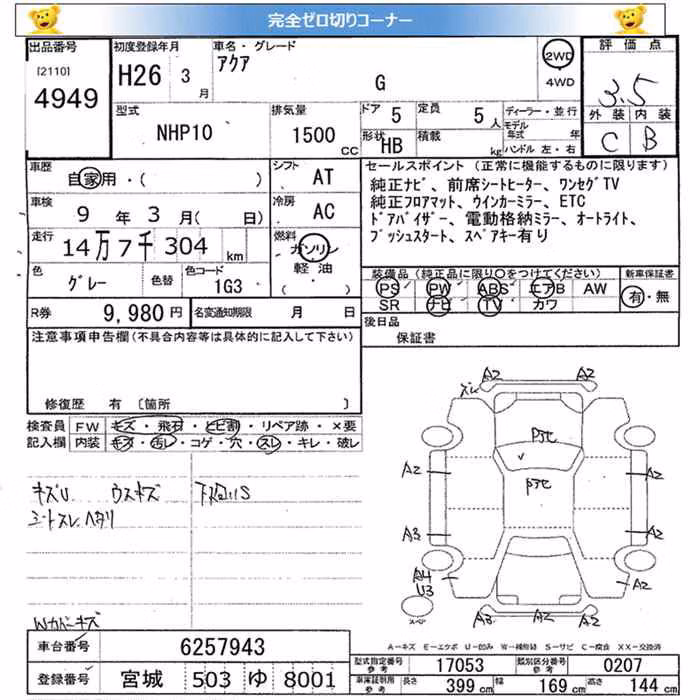 完全ゼロ切りコーナー
出品番号
[2110]
4949
初度登録年月
H26 3 月
車名・グレード
アクア
G
2WD
4WD
評価点
3.5
外装 内装
C B
型式
NHP10
排気量
1500 CC
ドア 5
定員 5 人
形状 HB
積載 kg
ディーラー・並行
モデル年式 年
ハンドル 左・右
車歴
自家用・( )
シフト AT
車検
9 年 3 月( 日)
冷房 AC
走行
14万7千304 km
燃料 ガソリン
軽油
( )
色 グレー
色替
色コード 1G3
R券 9,980円
名変通知期限 月 日
セールスポイント (正常に機能するものに限ります)
純正ナビ、前席シートヒーター、ワンセグTV
純正フロアマット、ウインカーミラー、ETC
ドアバイザー、電動格納ミラー、オートライト、
プッシュスタート、スペアキー有り
装備品(純正品に限り○をつけてください)
新車保証書
PS PW ABS エアB AW
SR ナビ TV カワ
有・無
後日品
保証書
注意事項申告欄(不具合内容等は具体的に記入して下さい)
修復歴 有 〔箇所 〕
検査員記入欄
FW キズ・飛石・ヒビ割・リペア跡・×要
内装 キズ・汚レ・コゲ・穴・スレ・キレ・破レ
キズU ウスキズ 下回りS
シートスレ ヘタリ
Wカバーキズ
車台番号 6257943
登録番号 宮城 503 ゆ 8001
A2 A2
ズレ
Pﾗﾋ
Pﾗﾋ
A2 A2
A3 A2
A4
U3
A2
スペア
A3 A2 A2
A-キズ E-エクボ U-凹み W-補修跡 S-サビ C-腐食 XX-交換済
型式指定番号 参考 17053
類別区分番号 参考 0207
車庫証明用 参考
長さ 399 cm
幅 169 cm
高さ 144 cm